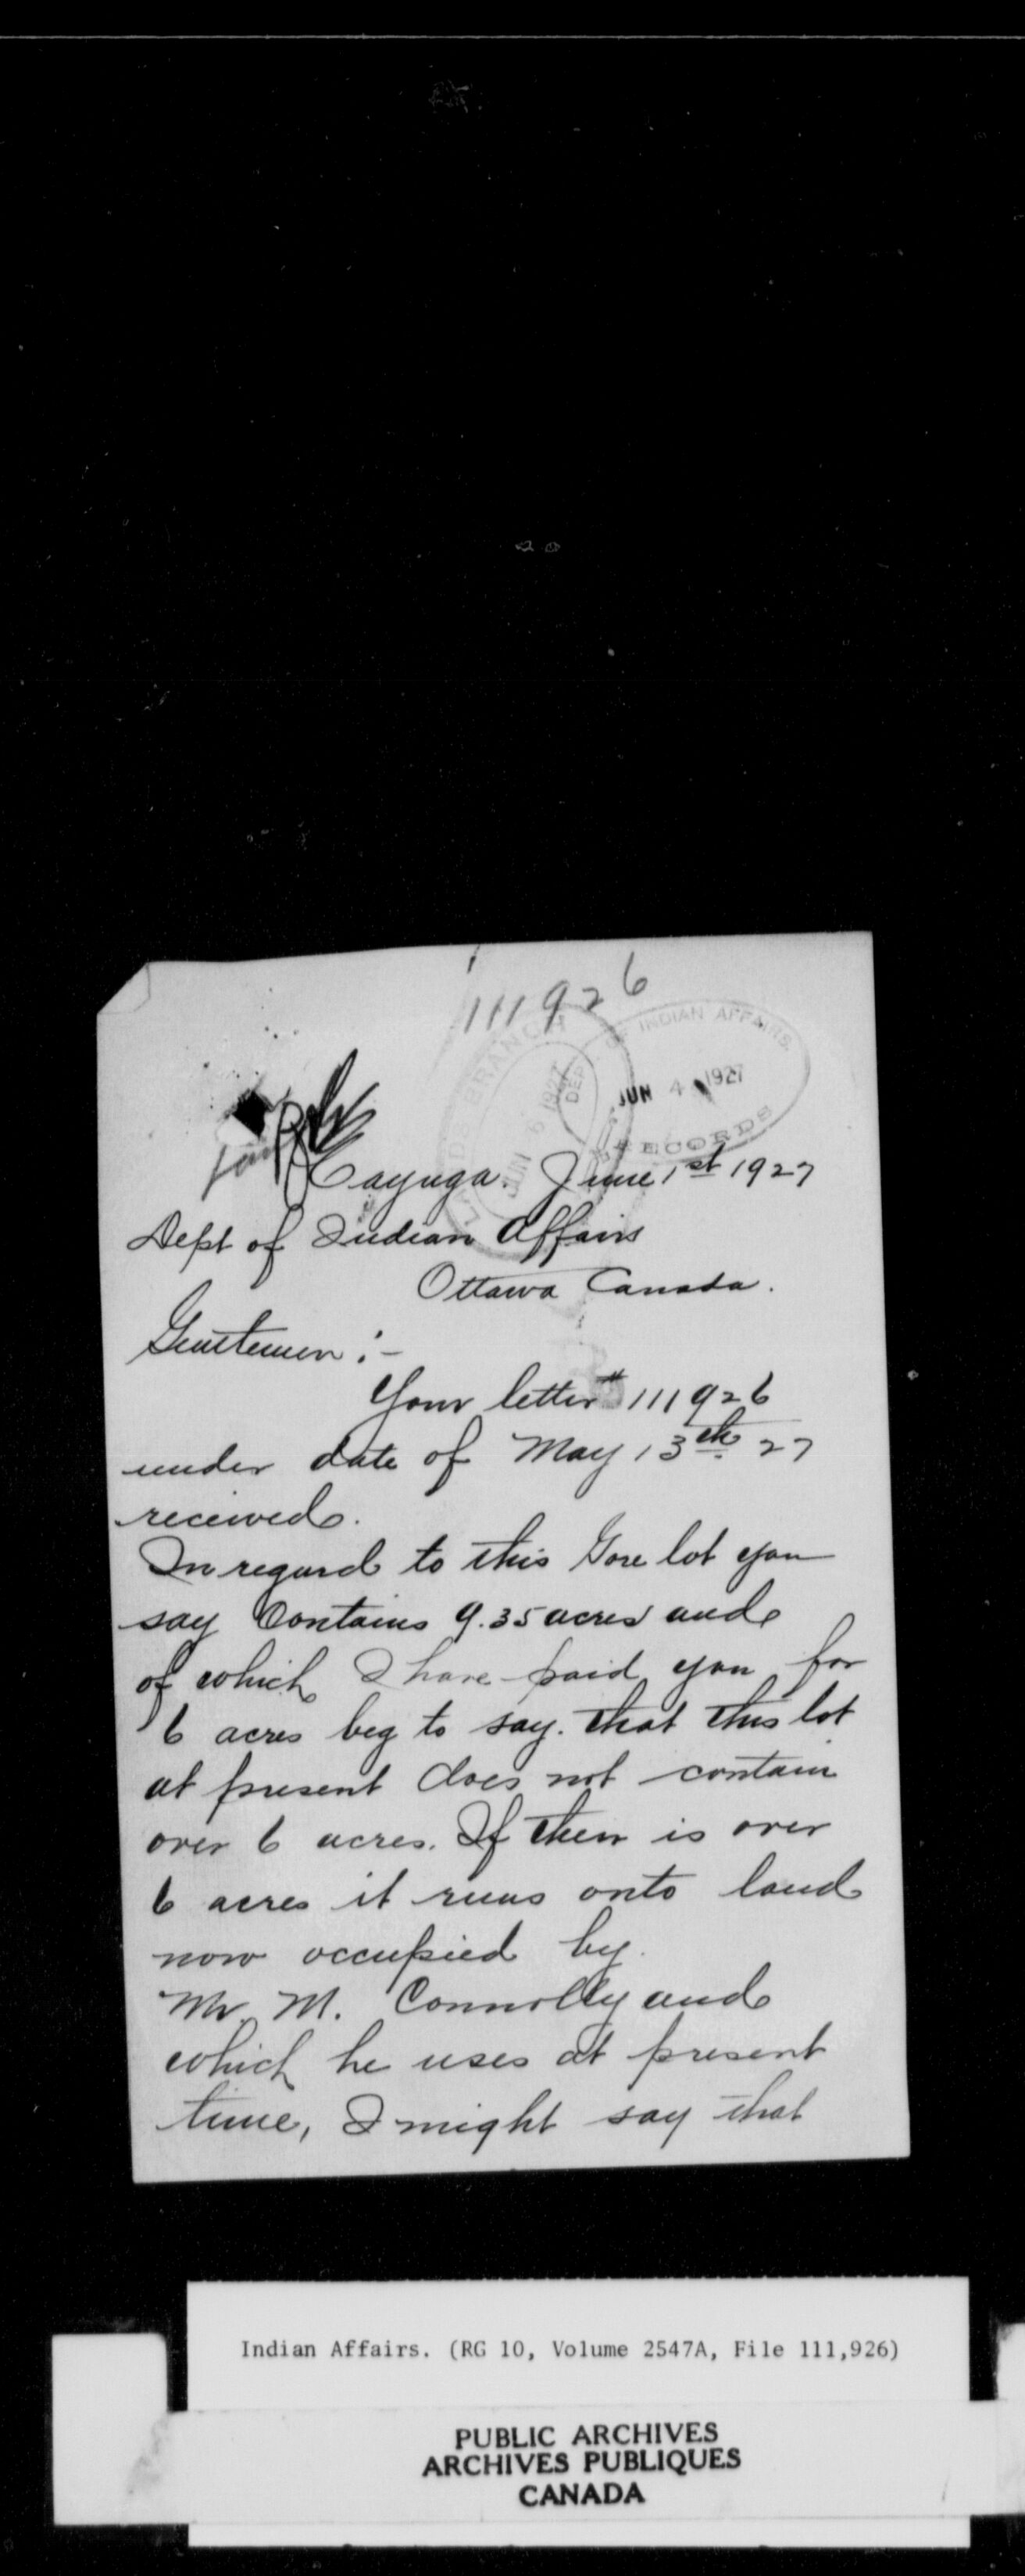 111926
LANDS BRANCH
JUN 6 1927
DEPT OF INDIAN AFFAIRS.
JUN 4 1927
RECORDS
Cayuga. June 1st 1927
Dept of Indian Affairs
Ottawa Canada.
Gentlemen :-
Your letter # 111926
under date of May 13th 27
received.
In regard to this Gore lot you
say contains 9.35 acres and
of which I have paid you for
6 acres beg to say. that this lot
at present does not contain
over 6 acres. If there is over
6 acres it runs onto land
now occupied by
Mr. M. Connolly and
which he uses at present
time, I might say that
Indian Affairs. (RG 10, Volume 2547A, File 111,926)
PUBLIC ARCHIVES
ARCHIVES PUBLIQUES
CANADA